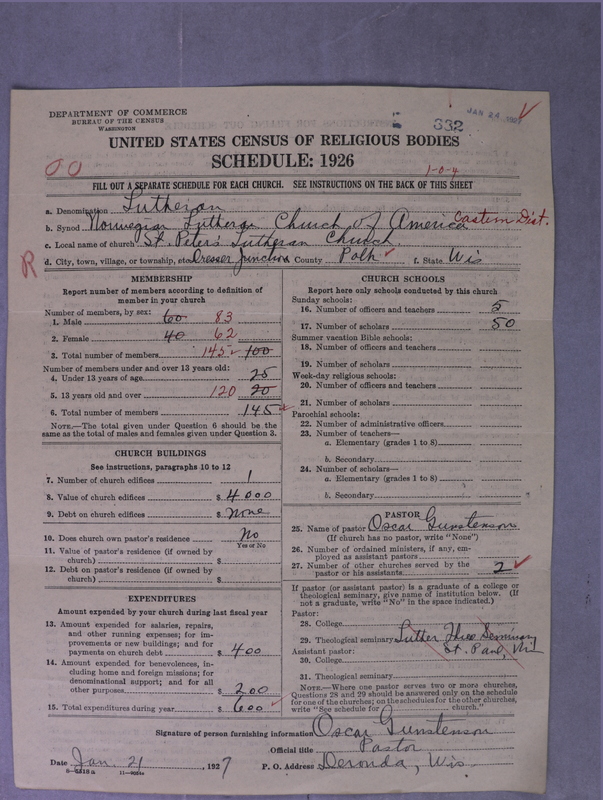 DEPARTMENT OF COMMERCE
BUREAU OF THE CENSUS
WASHINGTON
632
JAN 24 1927
UNITED STATES CENSUS OF RELIGIOUS BODIES
SCHEDULE: 1926
1-0-4
FILL OUT A SEPARATE SCHEDULE FOR EACH CHURCH. SEE INSTRUCTIONS ON THE BACK OF THIS SHEET
a. Denomination Lutheran
b. Synod Norwegian Lutheran Church of America Eastern Dist.
c. Local name of church St. Peter's Lutheran Church
d. City, town, village, or township, etc. Dresser Junction County Polk f. State Wis
R
MEMBERSHIP
Report number of members according to definition of
member in your church
Number of members, by sex:
1. Male 60 83
2. Female 40 62
3. Total number of members 145 100
Number of members under and over 13 years old:
4. Under 13 years of age 25
5. 13 years old and over 120 20
6. Total number of members 145
NOTE.—The total given under Question 6 should be the
same as the total of males and females given under Question 3.
CHURCH BUILDINGS
See instructions, paragraphs 10 to 12
7. Number of church edifices 1
8. Value of church edifices $ 4000
9. Debt on church edifices $ None
10. Does church own pastor's residence? No
Yes or No
11. Value of pastor's residence (if owned by
church) $
12. Debt on pastor's residence (if owned by
church) $
EXPENDITURES
Amount expended by your church during last fiscal year
13. Amount expended for salaries, repairs,
and other running expenses; for im-
provements or new buildings; and for
payments on church debt $ 400
14. Amount expended for benevolences, in-
cluding home and foreign missions; for
denominational support; and for all
other purposes $ 200
15. Total expenditures during year $ 600
CHURCH SCHOOLS
Report here only schools conducted by this church
Sunday schools:
16. Number of officers and teachers 5
17. Number of scholars 50
Summer vacation Bible schools:
18. Number of officers and teachers
19. Number of scholars
Week-day religious schools:
20. Number of officers and teachers
21. Number of scholars
Parochial schools:
22. Number of administrative officers
23. Number of teachers—
a. Elementary (grades 1 to 8)
b. Secondary
24. Number of scholars—
a. Elementary (grades 1 to 8)
b. Secondary
PASTOR
25. Name of pastor Oscar Gunstenson
(If church has no pastor, write "None")
26. Number of ordained ministers, if any, em-
ployed as assistant pastors
27. Number of other churches served by the
pastor or his assistants 2
If pastor (or assistant pastor) is a graduate of a college or
theological seminary, give name of institution below. (If
not a graduate, write "No" in the space indicated.)
Pastor:
28. College
29. Theological seminary Luther Theo Seminary
Assistant pastor: St. Paul,
30. College
31. Theological seminary
NOTE.—Where one pastor serves two or more churches,
Questions 28 and 29 should be answered only on the schedule
for one of the churches; on the schedules for the other churches,
write "See schedule for church."
Signature of person furnishing information Oscar Gunstenson
Official title Pastor
Date Jan. 21, 1927 P. O. Address Deronda, Wis